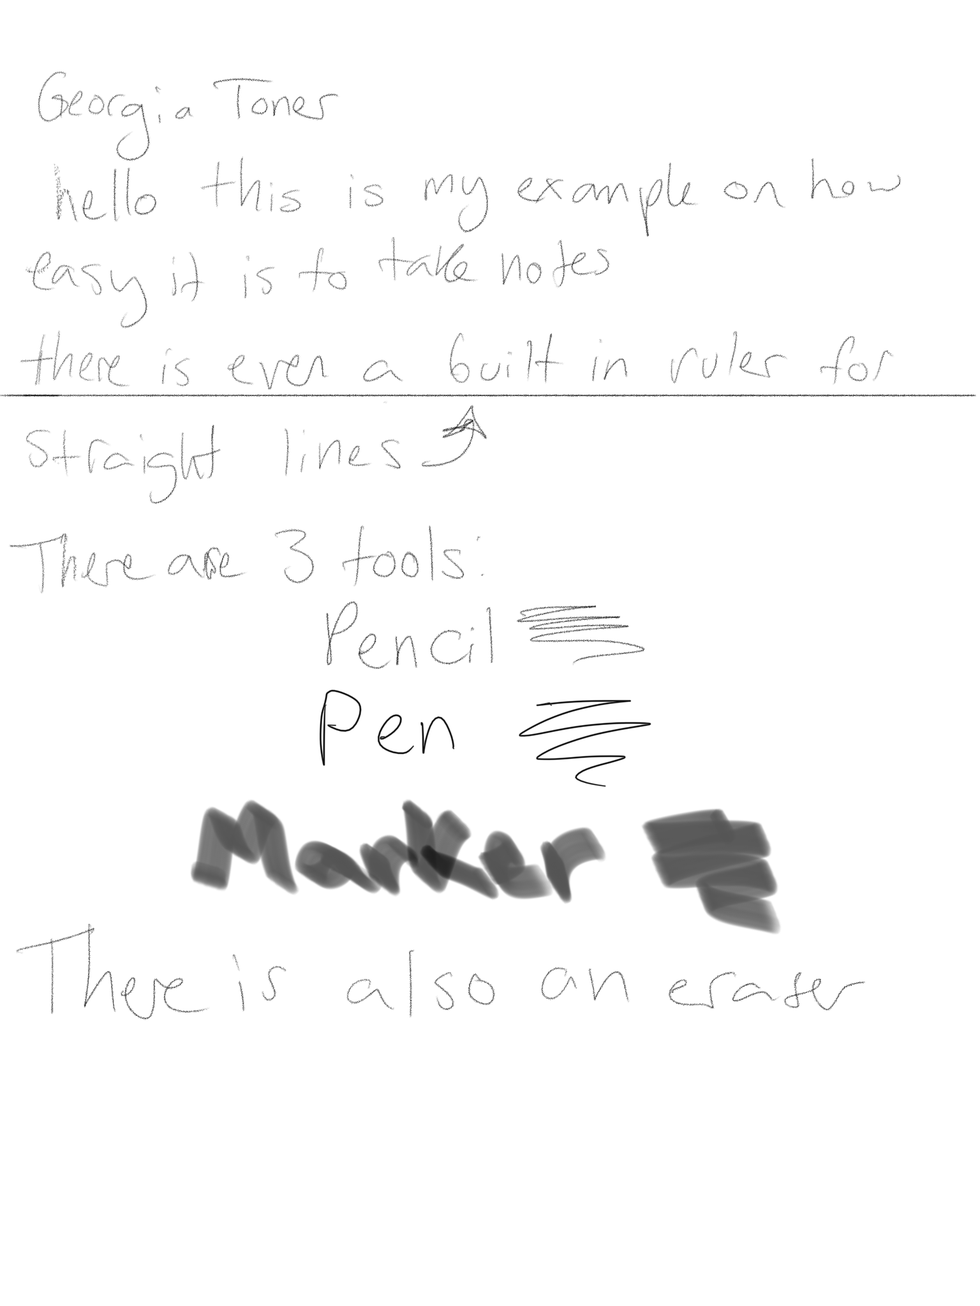 Georgia Toner
hello this is my example on how
easy it is to take notes
there is even a built in ruler for
straight lines
There are 3 tools:
Pencil
Pen
Marker
There is also an eraser